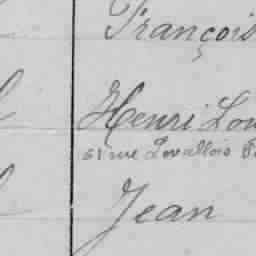 François
Henri Lou
61 rue Levallois
Jean